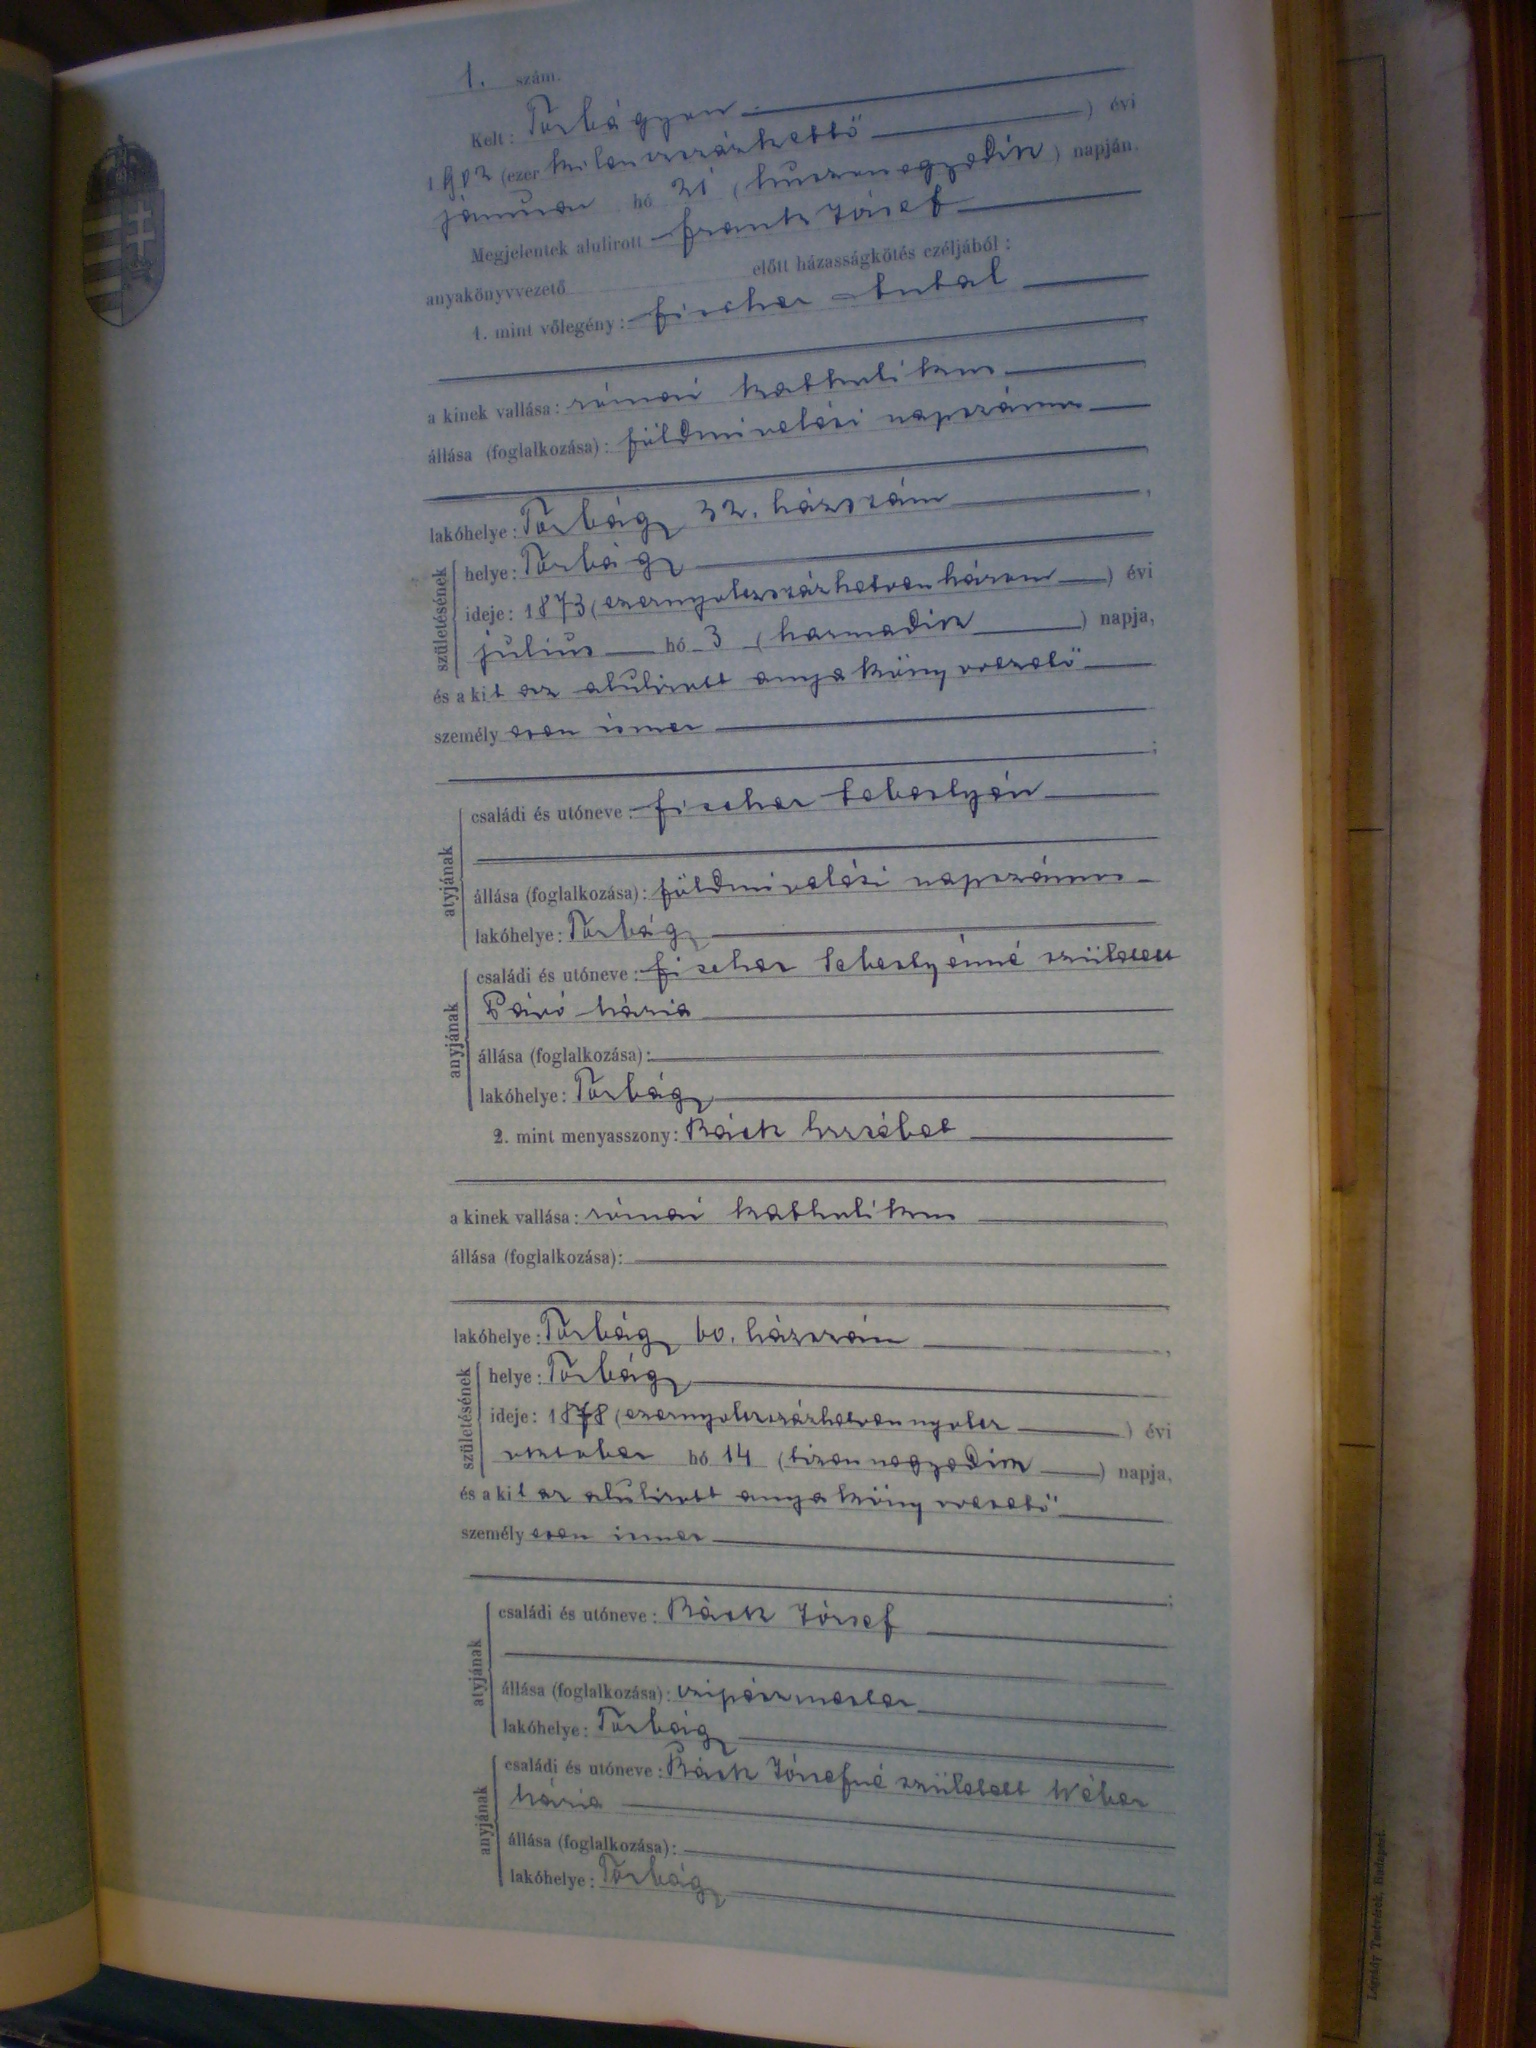 1. szám.
Kelt: Torbágyon
1902 (ezerkilenczszázkettő) évi
január hó 21 (huszonegyedik) napján.
Megjelentek alulirott Frantz József
anyakönyvvezető előtt házasságkötés czéljából:
1. mint vőlegény: Fischer Antal
a kinek vallása: római katholikus
állása (foglalkozása): földmivelési napszámos
lakóhelye: Torbágy 32. házszám,
születésének
helye: Torbágy
ideje: 1873 (ezernyolczszázhetvenhárom) évi
július hó 3 (harmadik) napja,
és a kit az alulirott anyakönyvvezető
személyesen ismer
;
atyjának
családi és utóneve: Fischer Sebestyén
állása (foglalkozása): földmivelési napszámos
lakóhelye: Torbágy
anyjának
családi és utóneve: Fischer Sebestyénné született
Mária
állása (foglalkozása):
lakóhelye: Torbágy
2. mint menyasszony: Erzsébet
a kinek vallása: római katholikus
állása (foglalkozása):
lakóhelye: Torbágy 60. házszám,
születésének
helye: Torbágy
ideje: 1878 (ezernyolczszázhetvennyolcz) évi
október hó 14 (tizennegyedik) napja,
és a kit az alulirott anyakönyvvezető
személyesen ismer
;
atyjának
családi és utóneve: József
állása (foglalkozása): czipészmester
lakóhelye: Torbágy
anyjának
családi és utóneve: Józsefné született Wéber
Mária
állása (foglalkozása):
lakóhelye: Torbágy
Légrády Testvérek, Budapest.